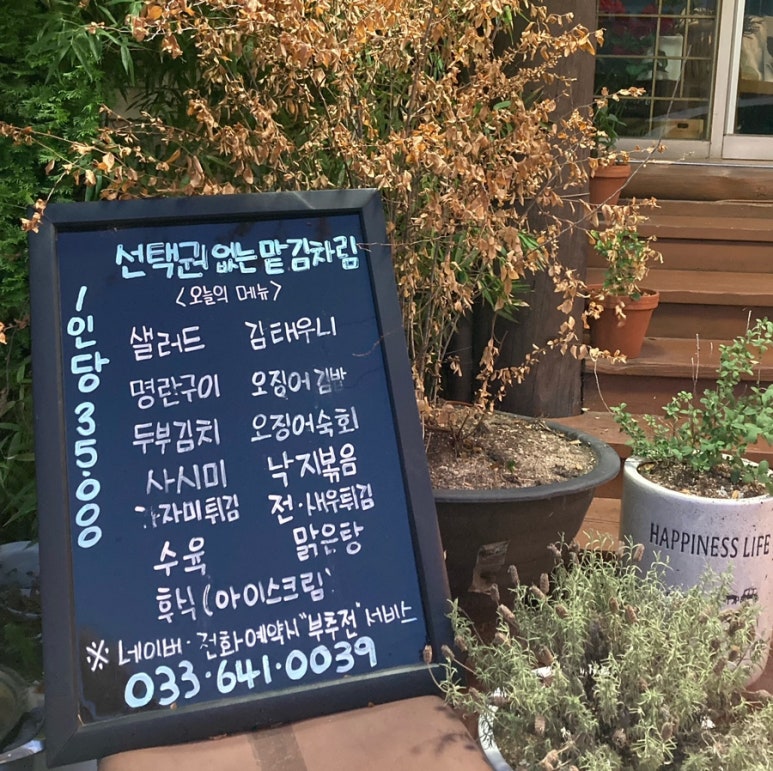 선택권 없는 맡김차림
<오늘의 메뉴>
1인당 35.000
샐러드 김태우니
명란구이 오징어김밥
두부김치 오징어숙회
사시미 낙지볶음
가자미튀김 전·새우튀김
수육 맑은탕
후식(아이스크림)
※ 네이버·전화예약시 "부추전" 서비스
033·641·0039
HAPPINESS LIFE